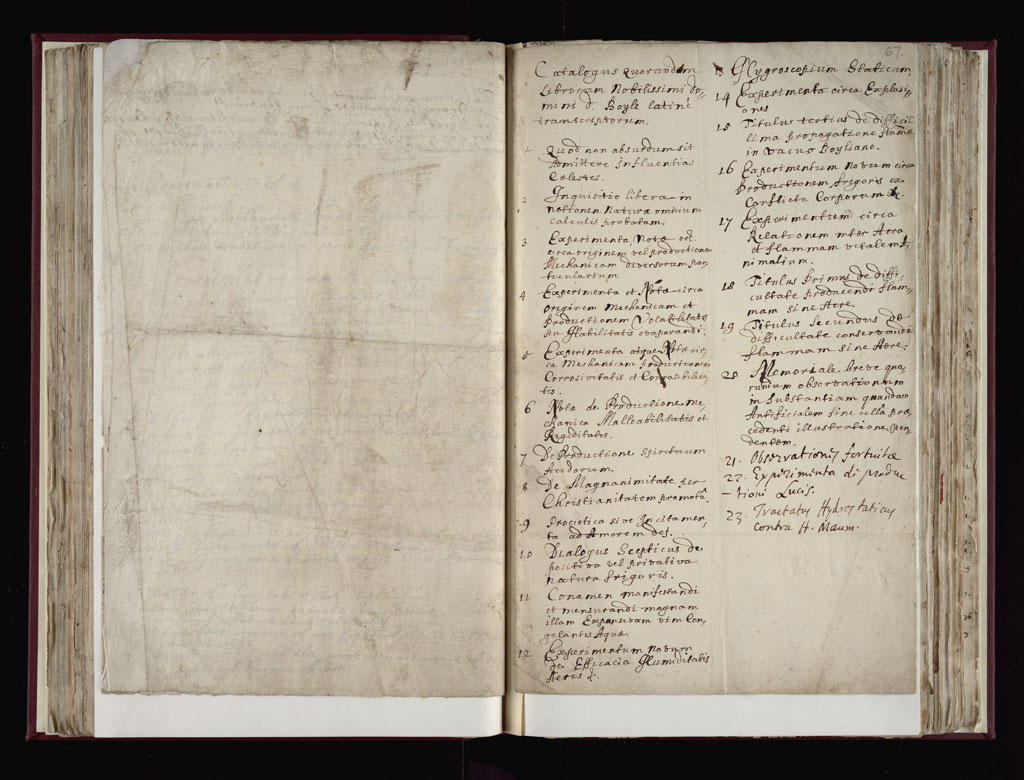 67.
Catalogus quorundam
Librorum Nobilissimi do-
mini d Boyle latinè
transcriptorum.
1 Quod non absurdum sit
Admittere Influentias
Cælestes.
2 Inquisitio libera in
notionem Naturæ omnium
calculis probatam.
3 Experimenta, Notæ etc.
circa originem vel productionem
Mechanicam diversorum par-
ticularium.
4 Experimenta et Notæ circa
originem Mechanicam et
Productionem Volatilitatis
seu Habilitatis evaporandi.
5 Experimenta atque Notæ cir-
ca Mechanicam productionem
Corrosivitatis et Corrosibilita-
tis.
6 Notæ de Productione me-
chanica Malleabilitatis et
Rigiditatis.
7 De Productione spirituum
Acidorum.
8 De Magnanimitate per
Christianitatem promotâ.
9 Procietica sive Incitamen-
ta ad Amorem dei.
10 Dialogus Scepticus de
positiva vel privativa
natura frigoris.
11 Conamen manifestandi
et mensurandi magnam
illam Expansivam vim Con-
gelantis Aquæ
12 Experimentum novum
de Efficacia Humiditatis
Aeris &.
13 Hygroscopium Staticum
14 Experimenta circa Explosi-
ones
15 Titulus tertius de difficil
lima propagatione flamæ
in vacuo Boyliano.
16 Experimentum novum circa
Productionem frigoris ex
Conflictu Corporum &.
17 Experimentum circa
Relationem inter Aera
et flammam vitalem A-
nimalium.
18 Titulus Primus de diffi-
cultate producendi flam-
mam sine Aere.
19 Titulus Secundus De
difficultate conservandi
flammam sine Aere.
20 Memoriale breve quo-
rundum observationum
in substantiam quandam
Artificialem sine ullâ præ-
cedenti illustratione splen-
dentem.
21. Observationes fortuitæ
22. Experimenta de produc
-tione Lucis.
23. Tractatus Hydrostaticus
contra H. Mæum.